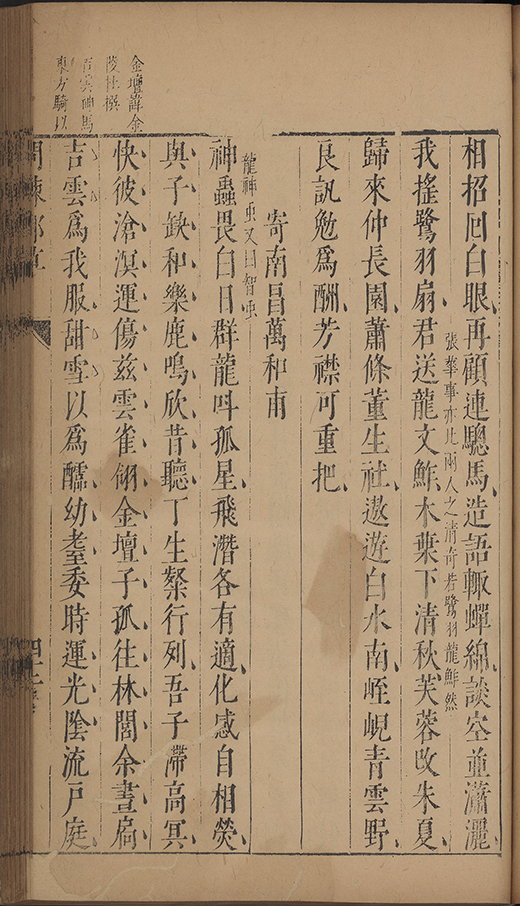 相招回白眼再顧連驄馬造語輙蟬綿談空並瀟灑
張華事亦比兩人之清奇若鷺羽龍鮓然
我搖鷺羽扇君送龍文鮓木葉下清秋芙蓉改朱夏
歸來仲長園蕭條董生社遨遊白水南峌峴青雲野
良訊勉爲酬芳襟可重把
寄南昌萬和甫
龍神虫又曰智虫
神蟲畏白日群龍叫孤星飛潛各有適化感自相熒
與子缺和樂鹿鳴欣昔聽丁生粲行列吾子滯高冥
快彼滄溟運傷茲雲雀翎金壇子孤往林閣余晝扃
吉雲爲我服甜雪以爲醽幼耋委時運光陰流戸庭
金壇諱金
陵杜撰
吉雲神馬
東方騎以
問棘郵草
四十